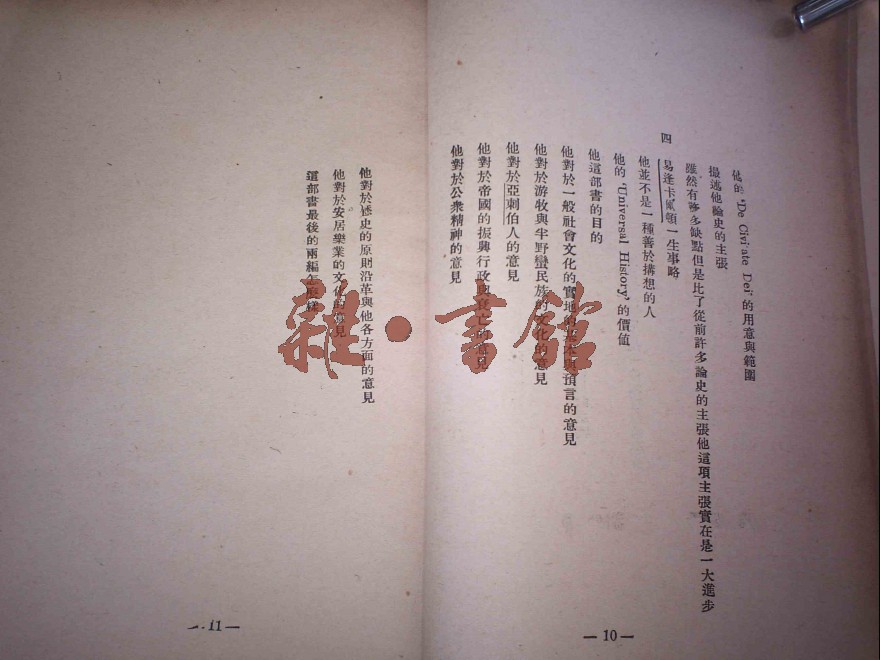 他的 'De Civitate Dei' 的用意與範圍
撮述他論史的主張
雖然有許多缺點但是比了從前許多論史的主張他這項主張實在是一大進步
四 易逢卡貳頓一生事略
他並不是一種善於搆想的人
他的 'Universal History' 的價值
他這部書的目的
他對於一般社會文化的實地的與預言的意見
他對於游牧與半野蠻民族的文化的意見
他對於亞刺伯人的意見
他對於帝國的振興行政與衰亡的意見
他對於公衆精神的意見
—10—
他對於歷史的原則沿革與他各方面的意見
他對於安居樂業的文化的意見
這部書最後的兩編怎麼樣
—11—
雜·書館